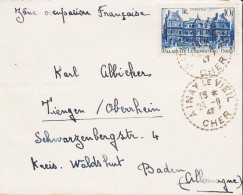 Zône occupation Française
Karl Albicker
Tiengen / Oberrhein
Schwarzenbergstr. 4
Kreis. Waldshut
Baden
(Allemagne)
10F
PALAIS DU LUXEMBOURG
CHER
AINAY LE VIEIL
15 *
CHER